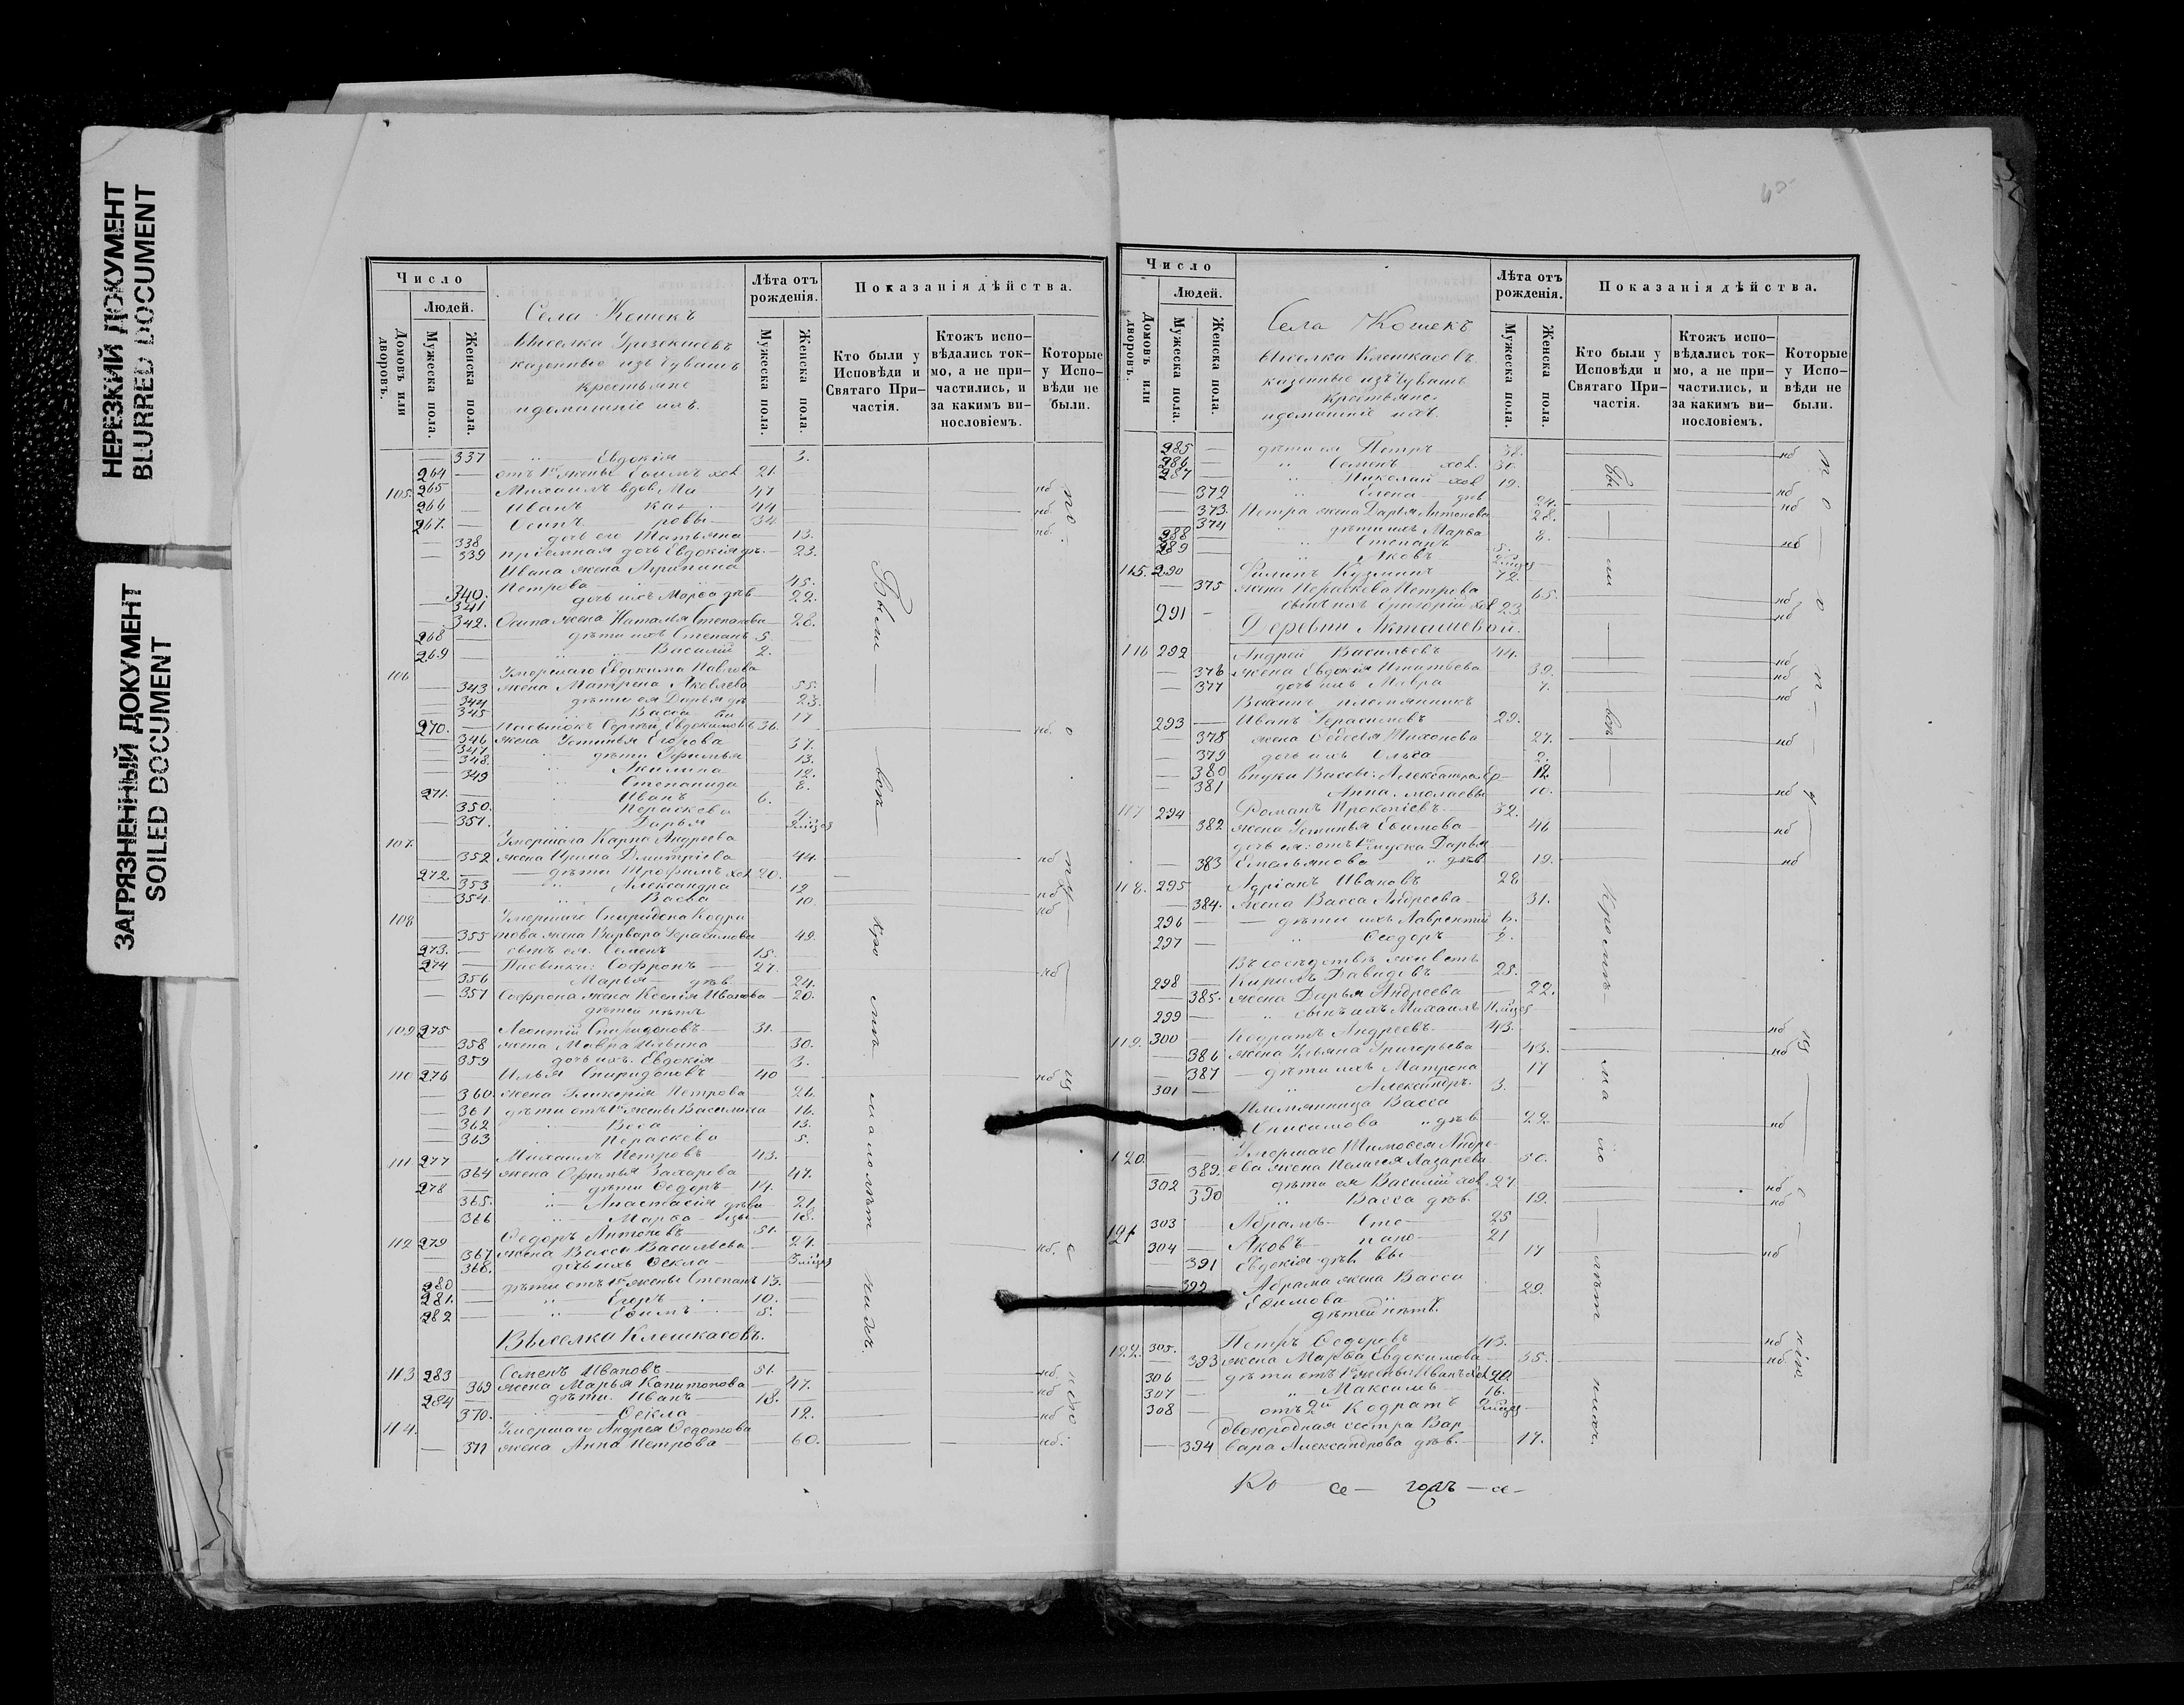 НЕРЕЗКИЙ ДОКУМЕНТ
BLURRED DOCUMENT
ЗАГРЯЗНЕННЫЙ ДОКУМЕНТ
SOILED DOCUMENT
Число
Людей.
Домовъ или дворовъ.
Мужеска пола.
Женска пола.
Села Кошекъ
казенные изъ Чувашъ
крестьяне
и домашніе ихъ.
Лѣта отъ рожденія.
Мужеска пола.
Женска пола.
Показанія дѣйства.
Кто были у Исповѣди и Святаго Причастія.
Ктожъ исповѣдались токмо, а не причастились, и за какимъ винословіемъ.
Которые у Исповѣди не были.
337 " Евдокія 3.
264 отъ 1й жены Ефимъ хол. 21.
105. 265 Михаилъ вдов. Ма 47 нб
266 Иванъ ка 44 нб
267. Осипъ ровы 34 нб
338 дочь его Татьяна 13.
339 пріемная дочь Евдокія дѣ. 23.
Ивана жена Агрипина
340. Петрова 45.
341 дочь ихъ Марѳа дѣв 22.
342. Осипа жена Наталья Степанова 28.
268 дѣти ихъ Степанъ 5.
269 Василій 2.
106 Умершаго Евдокима Павлова
343 жена Матрона Яковлева 55.
344 дѣти ея Дарья дѣ 23.
345 Васса 17
270. Пасынокъ Сергѣй Евдокимовъ 36. нб.
346 жена Устинья Егорова 37.
347. дѣти Ефимья 13.
348. Акилина 12.
349 Степанида 8.
271. Иванъ 6.
350. Параскева 4.
351. Дарья
107. Умершаго Карпа Андреева
352 жена Ирина Дмитріева 44. нб
272. дѣти Трофимъ хол. 20.
353 Александра 12 нб
354. Васса 10. нб
108 Умершаго Спиридона Кодра
355 това жена Варвара Герасимова 49.
273. сынъ ея Семенъ 15.
274 Пасынки: Софронъ 27. нб
356 Марья дѣв. 24.
357 Софрона жена Ксенія Иванова 20.
дѣтей нѣтъ
109 275 Леонтій Спиридоновъ 31.
358 жена Мавра Ильина 30.
359 дочь ихъ Евдокія 3.
110 276 Илья Спиридоновъ 40 нб
360. жена Гликерія Петрова 26.
361 дѣти отъ 1й жены Василиса 16.
362 Васса 13.
363 Параскева 5.
111 277 Михаилъ Петровъ 43.
364 жена Ефимья Захарова 47.
278 дѣти Ѳедоръ 14.
365. Анастасія дѣва 21.
366 Марѳа 18.
112 279 Ѳедоръ Антоновъ 51.
367 жена Васса Васильева 24. нб.
368. дочь ихъ Ѳекла
280 дѣти отъ 1й жены Степанъ 13.
281. Егоръ 10.
282 Ефимъ 5.
Выселка Клешкасовъ.
113 283 Семенъ Ивановъ 51. нб.
369 жена Марья Капитонова 47. нб
284 дѣти Иванъ 18.
370. Ѳекла 12. нб
114. Умершаго Андрея Ѳедотова
371 жена Анна Петрова 60. нб.
Были
кро мѣ малолѣт нихъ
Число
Людей.
Домовъ или дворовъ.
Мужеска пола.
Женска пола.
Села Кошекъ
выселка Клешкасовъ
казенные изъ Чувашъ
крестьяне
и домашніе ихъ.
Лѣта отъ рожденія.
Мужеска пола.
Женска пола.
Показанія дѣйства.
Кто были у Исповѣди и Святаго Причастія.
Ктожъ исповѣдались токмо, а не причастились, и за какимъ винословіемъ.
Которые у Исповѣди не были.
285 дѣти ея Петръ 38. нб
286 " Семенъ хол. 30.
287 " Николай хол 19. нб
372 " Елена дѣв 24. нб
373. Петра жена Дарья Антонова 28.
374 дѣти ихъ Марѳа 8. нб
288 " Степанъ 5.
289 " Яковъ
115. 290 Филипъ Кузминъ 72.
375 жена Параскева Петрова 65. нб
291 сынъ ихъ Григорій хол 23. нб
Деревни Акташевой.
116 292 Андрей Васильевъ 44. нб
376 жена Евдокія Игнатьева 39. нб
377 дочь ихъ Мавра 7. нб
Вассинъ племянникъ
293 Иванъ Герасимовъ 29.
378 жена Ѳедосья Тихонова 27. нб
379 дочь ихъ Ольга 2.
380 внуки Вассы: Александра Ер 12.
381 Анна. молаевы 10. нб
117 294 Романъ Прокопіевъ 32.
382 жена Устинья Ефимова 46 нб
дочь ея: отъ 1го мужа Дарья
383 Емельянова " дѣв. 19. нб
118. 295 Адріанъ Ивановъ 28
384. жена Васса Андреева 31.
296 дѣти ихъ Лаврентій 6.
297 " Ѳеодоръ 2.
Въ сосѣдствѣ живетъ
298 Кирилъ Давидовъ 25.
385. жена Дарья Андреева 22.
299 " сынъ ихъ Михаилъ
119. 300 Кодратъ Андреевъ 43. нб
386 жена Ульяна Григорьева 43. нб
387 дѣти ихъ Матрона 17
301 " Александръ 3.
Племянница Васса
Анисимова " дѣв. 22. нб
120. Умершаго Тимоѳея Андре-
389. ева жена Пелагея Лазарева 50.
302 дѣти ея Василій хол. 27 нб
390 " Васса дѣв. 19. нб
121 303 Абрамъ Сте 25
304 Яковъ пано 21
391 Евдокія дѣв. вы 17 нб
392 Абрама жена Васса
Ефимова 29.
дѣтей нѣтъ.
122. 305. Петръ Ѳедоровъ 43. нб
393 жена Марѳа Евдокимова 35. нб
306 дѣти отъ 1й жены Иванъ хол 20.
307 " Максимъ 16.
308 отъ 2й Кодратъ
Двоюродная сестра Вар
394 вара Александрова дѣв. 17.
Бы ли
Кромѣ ма ло лѣт нихъ.